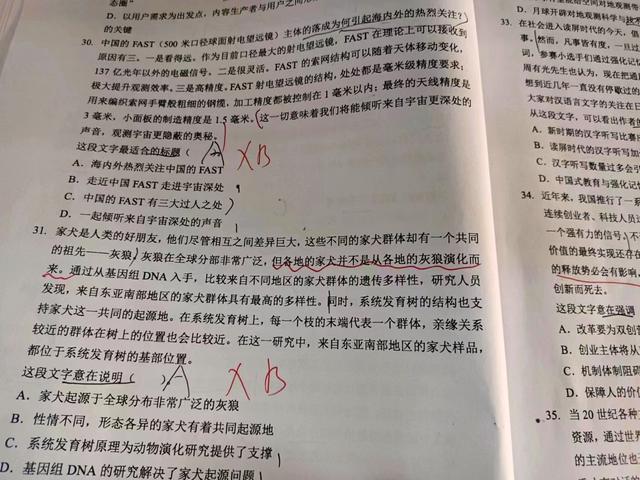 态圈"
D. 以用户需求为出发点，内容生产者与用户之间
的关键
30. 中国的 FAST（500 米口径球面射电望远镜）主体的落成为何引起海内外的热烈关注？
原因有三。一是看得远。作为目前口径最大的射电望远镜，FAST 在理论上可以接收到
137 亿光年以外的电磁信号。二是很灵活。FAST 的索网结构可以随着天体移动变化，
极大提升观测效率。三是高精度。FAST 射电望远镜的结构，处处都是毫米级精度要求：
用来编织索网手臂般粗细的钢缆，加工精度都被控制在 1 毫米以内；最终的天线精度是
3 毫米，小面板的制造精度是 1.5 毫米。这一切意味着我们将能倾听来自宇宙更深处的
声音，观测宇宙更隐蔽的奥秘。
这段文字最适合的标题（ A X B
A. 海内外热烈关注中国的 FAST
B. 走近中国 FAST 走进宇宙深处
C. 中国的 FAST 有三大过人之处
D. 一起倾听来自宇宙深处的声音
31. 家犬是人类的好朋友，他们尽管相互之间差异巨大，这些不同的家犬群体却有一个共同
的祖先——灰狼。灰狼在全球分部非常广泛，但各地的家犬并不是从各地的灰狼演化而
来。通过从基因组 DNA 入手，比较来自不同地区的家犬群体的遗传多样性，研究人员
发现，来自东亚南部地区的家犬群体具有最高的多样性。同时，系统发育树的结构也支
持家犬这一共同的起源地。在系统发育树上，每一个枝的末端代表一个群体，亲缘关系
较近的群体在树上的位置也会比较近。在这一研究中，来自东亚南部地区的家犬样品，
都位于系统发育树的基部位置。
这段文字意在说明（ ）A X B
A. 家犬起源于全球分布非常广泛的灰狼
B. 性情不同，形态各异的家犬有着共同起源地
C. 系统发育树原理为动物演化研究提供了支撑
D. 基因组 DNA 的研究解决了家犬起源问题
D. 月球开辟对地观测科学与
33. 在社会进入读屏时代的今天，
事。然而，凡事皆有度，一旦
词，参赛小选手们通过强化记
周有光先生也认为，现在把通
想到近几年一直没有停歇过的
大家对汉语言文字的关注在日
从这段文字，可以看出作者的
A. 新时期的汉字听写比赛
B. 读屏时代的汉字听写
C. 汉字听写数量过多会
D. 中国式教育与强化记
34. 近年来，我国推行了一系
连续创业者、科技人员
一个强有力的信号
价值的最终实现还存在
的释放势必会有影响，
创新而死去。
这段文字意在强调
A. 改革要为双创
B. 创业主体将从
C. 机制体制阻碍
D. 保障人的价值
35. 当 20 世纪各种
资源，通过世界
的主流地位也